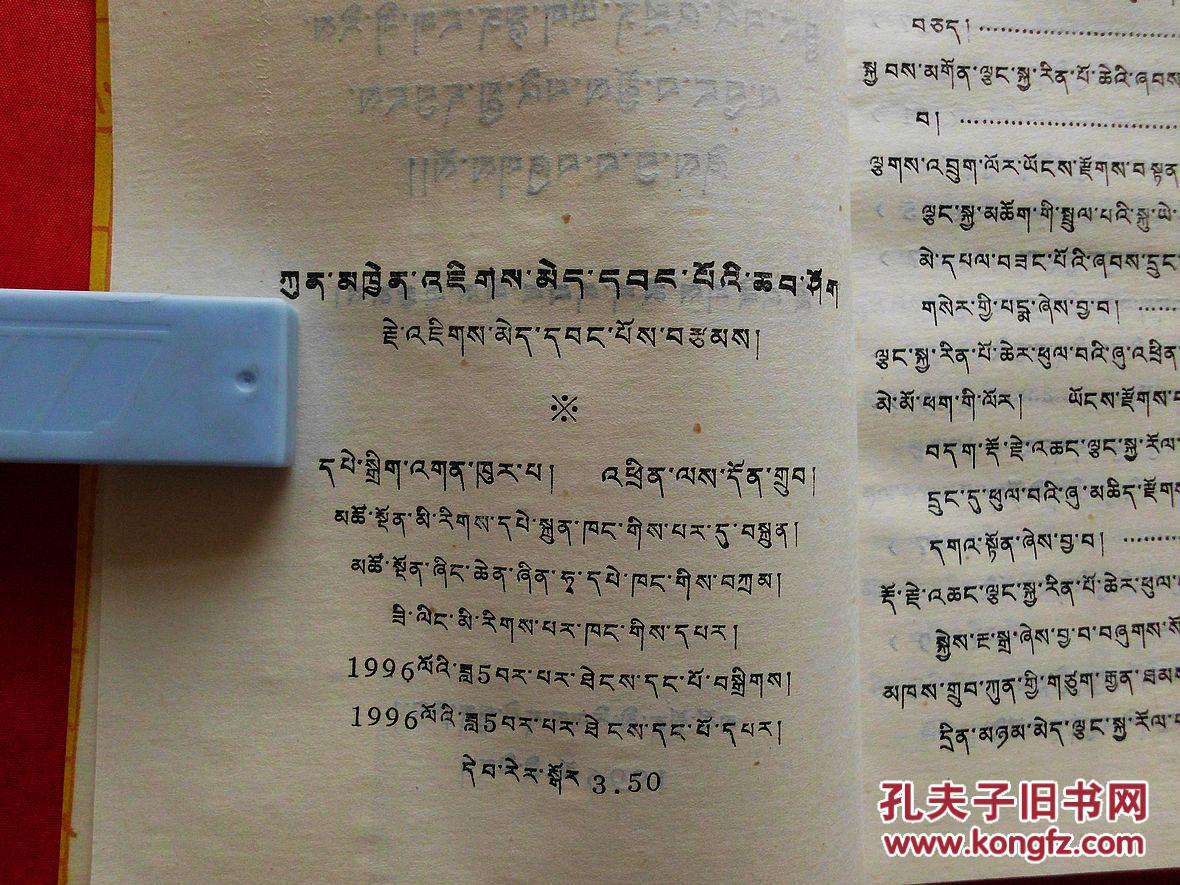 ཀུན་མཁྱེན་འཇིགས་མེད་དབང་པོའི་ཆབ་ཤོག
རྗེ་འཇིགས་མེད་དབང་པོས་བརྩམས།
※
དཔེ་སྒྲིག་འགན་ཁུར་པ། འཕྲིན་ལས་དོན་གྲུབ།
མཚོ་སྔོན་མི་རིགས་དཔེ་སྐྲུན་ཁང་གིས་པར་དུ་བསྐྲུན།
མཚོ་སྔོན་ཞིང་ཆེན་ཞིན་ཧྭ་དཔེ་ཁང་གིས་བཀྲམ།
ཟི་ལིང་མི་རིགས་པར་ཁང་གིས་དཔར།
1996ལོའི་ཟླ5བར་པར་ཐེངས་དང་པོ་བསྒྲིགས།
1996ལོའི་ཟླ5བར་པར་ཐེངས་དང་པོ་དཔར།
དེབ་རེར་སྒོར 3.50
བཅད།
སྐྱབས་མགོན་ལྕང་སྐྱ་རིན་པོ་ཆེའི་ཞབས
བ།
ལྕགས་འབྲུག་ལོར་ཡོངས་རྫོགས་བསྟན
ལྕང་སྐྱ་མཆོག་གི་སྤྲུལ་པའི་སྐུ་ཡེ་
མེ་དཔལ་བཟང་པོའི་ཞབས་དྲུང་
གསེར་གྱི་པདྨ་ཞེས་བྱ་བ།
ལྕང་སྐྱ་རིན་པོ་ཆེར་ཕུལ་བའི་ཞུ་འཕྲིན
མེ་མོ་ཕག་གི་ལོར། ཡོངས་རྫོགས་བ
བདག་རྡོ་རྗེ་འཆང་ལྕང་སྐྱ་རོལ་
དྲུང་དུ་ཕུལ་བའི་ཞུ་མཆིད་རྫོགས
དགའ་སྟོན་ཞེས་བྱ་བ།
རྡོ་རྗེ་འཆང་ལྕང་སྐྱ་རིན་པོ་ཆེར་ཕུལ་
སྐྱེས་རྔ་སྒྲ་ཞེས་བྱ་བ་བཞུགས་སོ
མཁས་གྲུབ་ཀུན་གྱི་གཙུག་རྒྱན་ཐམས
དྲིན་མཉམ་མེད་ལྕང་སྐྱ་རོལ་པ
孔夫子旧书网
www.kongfz.com